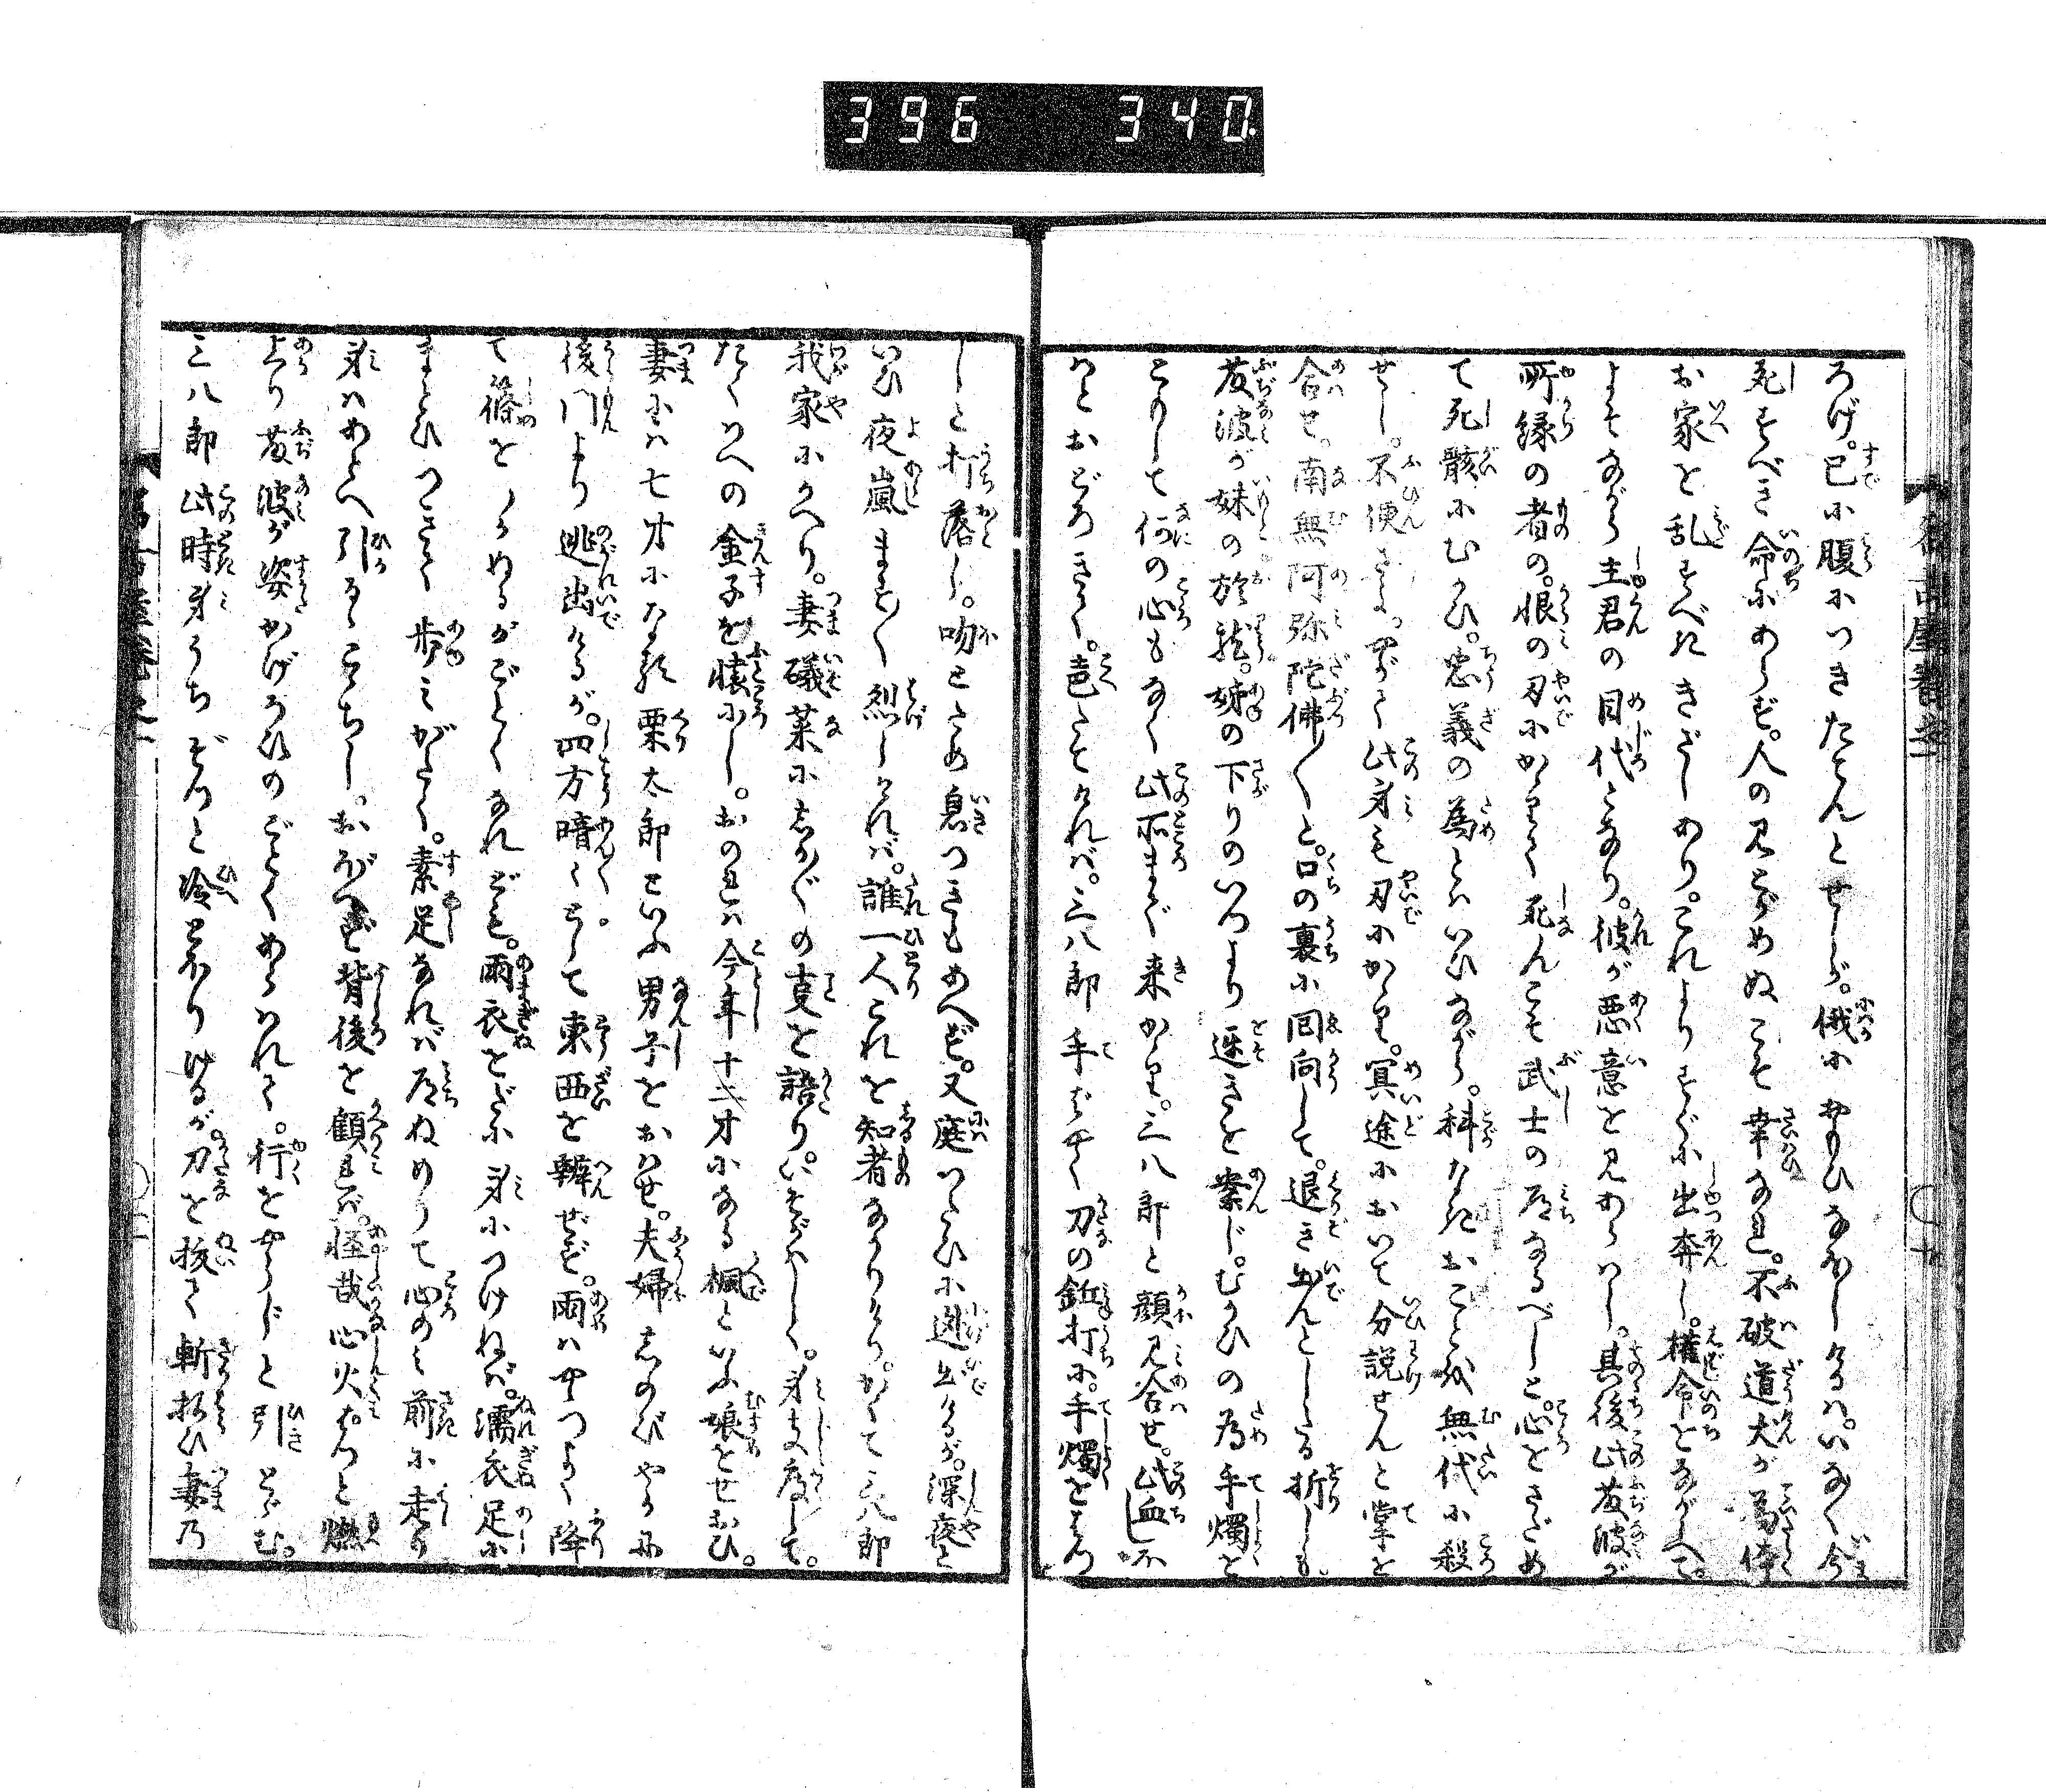 396 340
ろげ。已に腹につきたてんとせしが。俄におもひなほしけるは。いな〳〵今
死すべき命にあらず。人の見とがめぬこそ幸なれ。不破道犬が為体
お家を乱すべききざしあり。これよりすぐに出奔し。権命をながらへて。
よそながら主君の目代となり。彼が悪意を見あらはし。其後此藤波が
所縁の者の。恨の刃にかゝりて死んこそ武士の道なるべしと。心をさだめ
て死骸にむかひ。忠義の為とはいひながら。科なきおことを無代に殺
せし。不便さよ。やがて此身も刃にかゝり。冥途において分説せんと掌を
合せ。南無阿弥陀佛〳〵と。口の裏に回向して。退き出んとしたる折しも。
藤波が妹の於龍。姉の下りのいつより遅きを案じ。むかひの為手燭を
ともして何の心もなく此所まで来かゝり。三八郎と顔見合せ。此血は
はとおどろきて。声たてければ。三八郎手ばやく刀の鉐打に。手燭をはつ
しと打落し。吻とため息つきもあへず。又庭つたひに逃出けるが。深夜と
いひ夜嵐ます〳〵烈しければ。誰一人これを知者なかりけり。かくて三八郎
我家にかへり。妻礒菜にしか〴〵の事を語り。いそがはしく。身支度して。
たくはへの金子を懐にし。おのれは今年十二才になる楓といふ娘をせおひ。
妻には七才になる栗太郎といふ男子をおはせ。夫婦しのびやかに
後門より逃出けるが。四方暗々として東西を辨ぜず。雨はやゝつよく降
て篠をつかぬるがごとくなれども。雨衣をだに身につけねば。濡衣足に
まとひつきて歩みがたく。素足なれば道ぬめりて心のみ前に走り
身はあとへ引るゝこゝちし。おぼへず背後を顧れば。怪哉心火ぱつと燃
上り藤波が姿かげろひのごとくあらはれて。行をやらじと引とゞむ。
三八郎此時身うちぞつと冷とほりけるが。刀を抜て斬払ひ妻の